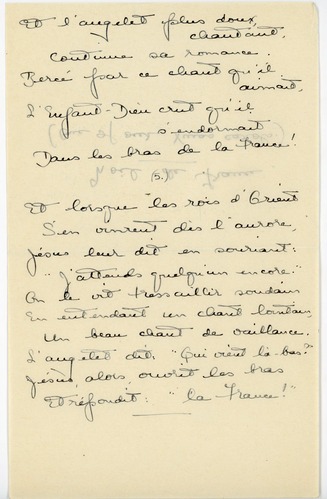 Et l'angelet plus doux,
chantant,
Continue sa romance.
Bercé par ce chant qu'il
aimait,
L'Enfant-Dieu crut qu'il
s'endormait
Dans les bras de la France!
(5.)
Et lorsque les rois d'Orient
S'en vinrent dès l'aurore,
Jésus leur dit en souriant:
"J'attends quelqu'un encore."
On le vit tressaillir soudain
En entendant un chant lointain
Un beau chant de vaillance.
L'angelet dit: "Qui vient là-bas?"
Jésus, alors, ouvrit les bras
Et répondit: "la France!"